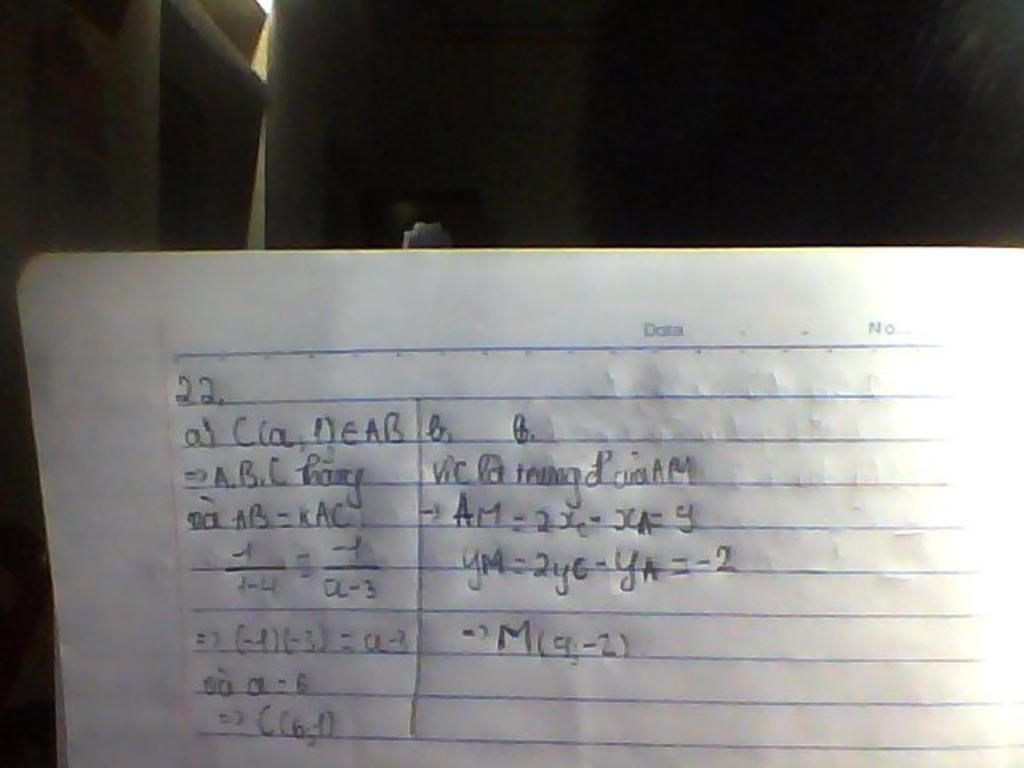 Date No.
22.
a) C(a, 1) ∈ AB
=> A, B, C thẳng
và AB = kAC
-1/1-4 = -1/a-3
=> (-1)(-3) = a-3
và a = 6
=> C(6,1)
b,
Vì C là trung đ' của AM
→ AM = 2xc - xA = 9
yM = 2yc - yA = -2
=> M(9,-2)